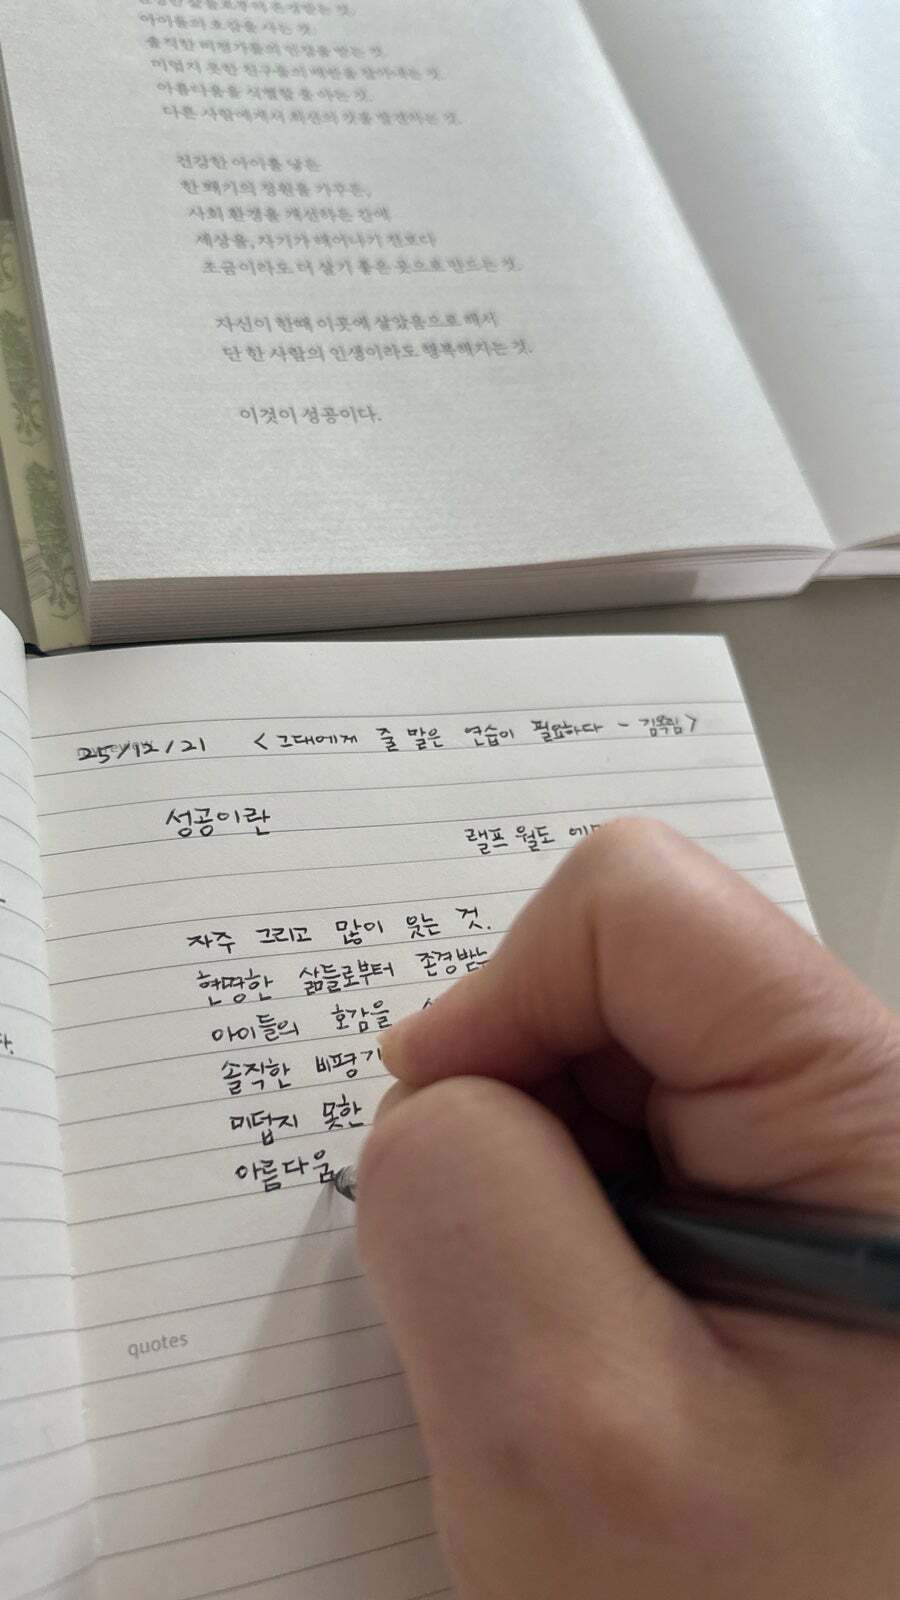 아이들의 호감을 사는 것.
솔직한 비평가들의 인정을 받는 것.
미덥지 못한 친구들의 배반을 참아내는 것.
아름다움을 식별할 줄 아는 것.
다른 사람에게서 최선의 것을 발견하는 것.
건강한 아이를 낳든
한 뙈기의 정원을 가꾸든,
사회 환경을 개선하든 간에
세상을, 자기가 태어나기 전보다
조금이라도 더 살기 좋은 곳으로 만드는 것.
자신이 한때 이곳에 살았음으로 해서
단 한 사람의 인생이라도 행복해지는 것.
이것이 성공이다.
25/12/21 <그대에게 줄 말은 연습이 필요하다 - 김옥림>
성공이란
랠프 월도
자주 그리고 많이 웃는 것.
현명한 삶들로부터 존경받는
아이들의 호감을
솔직한 비평
미덥지 못한
아름다움
quotes
다.